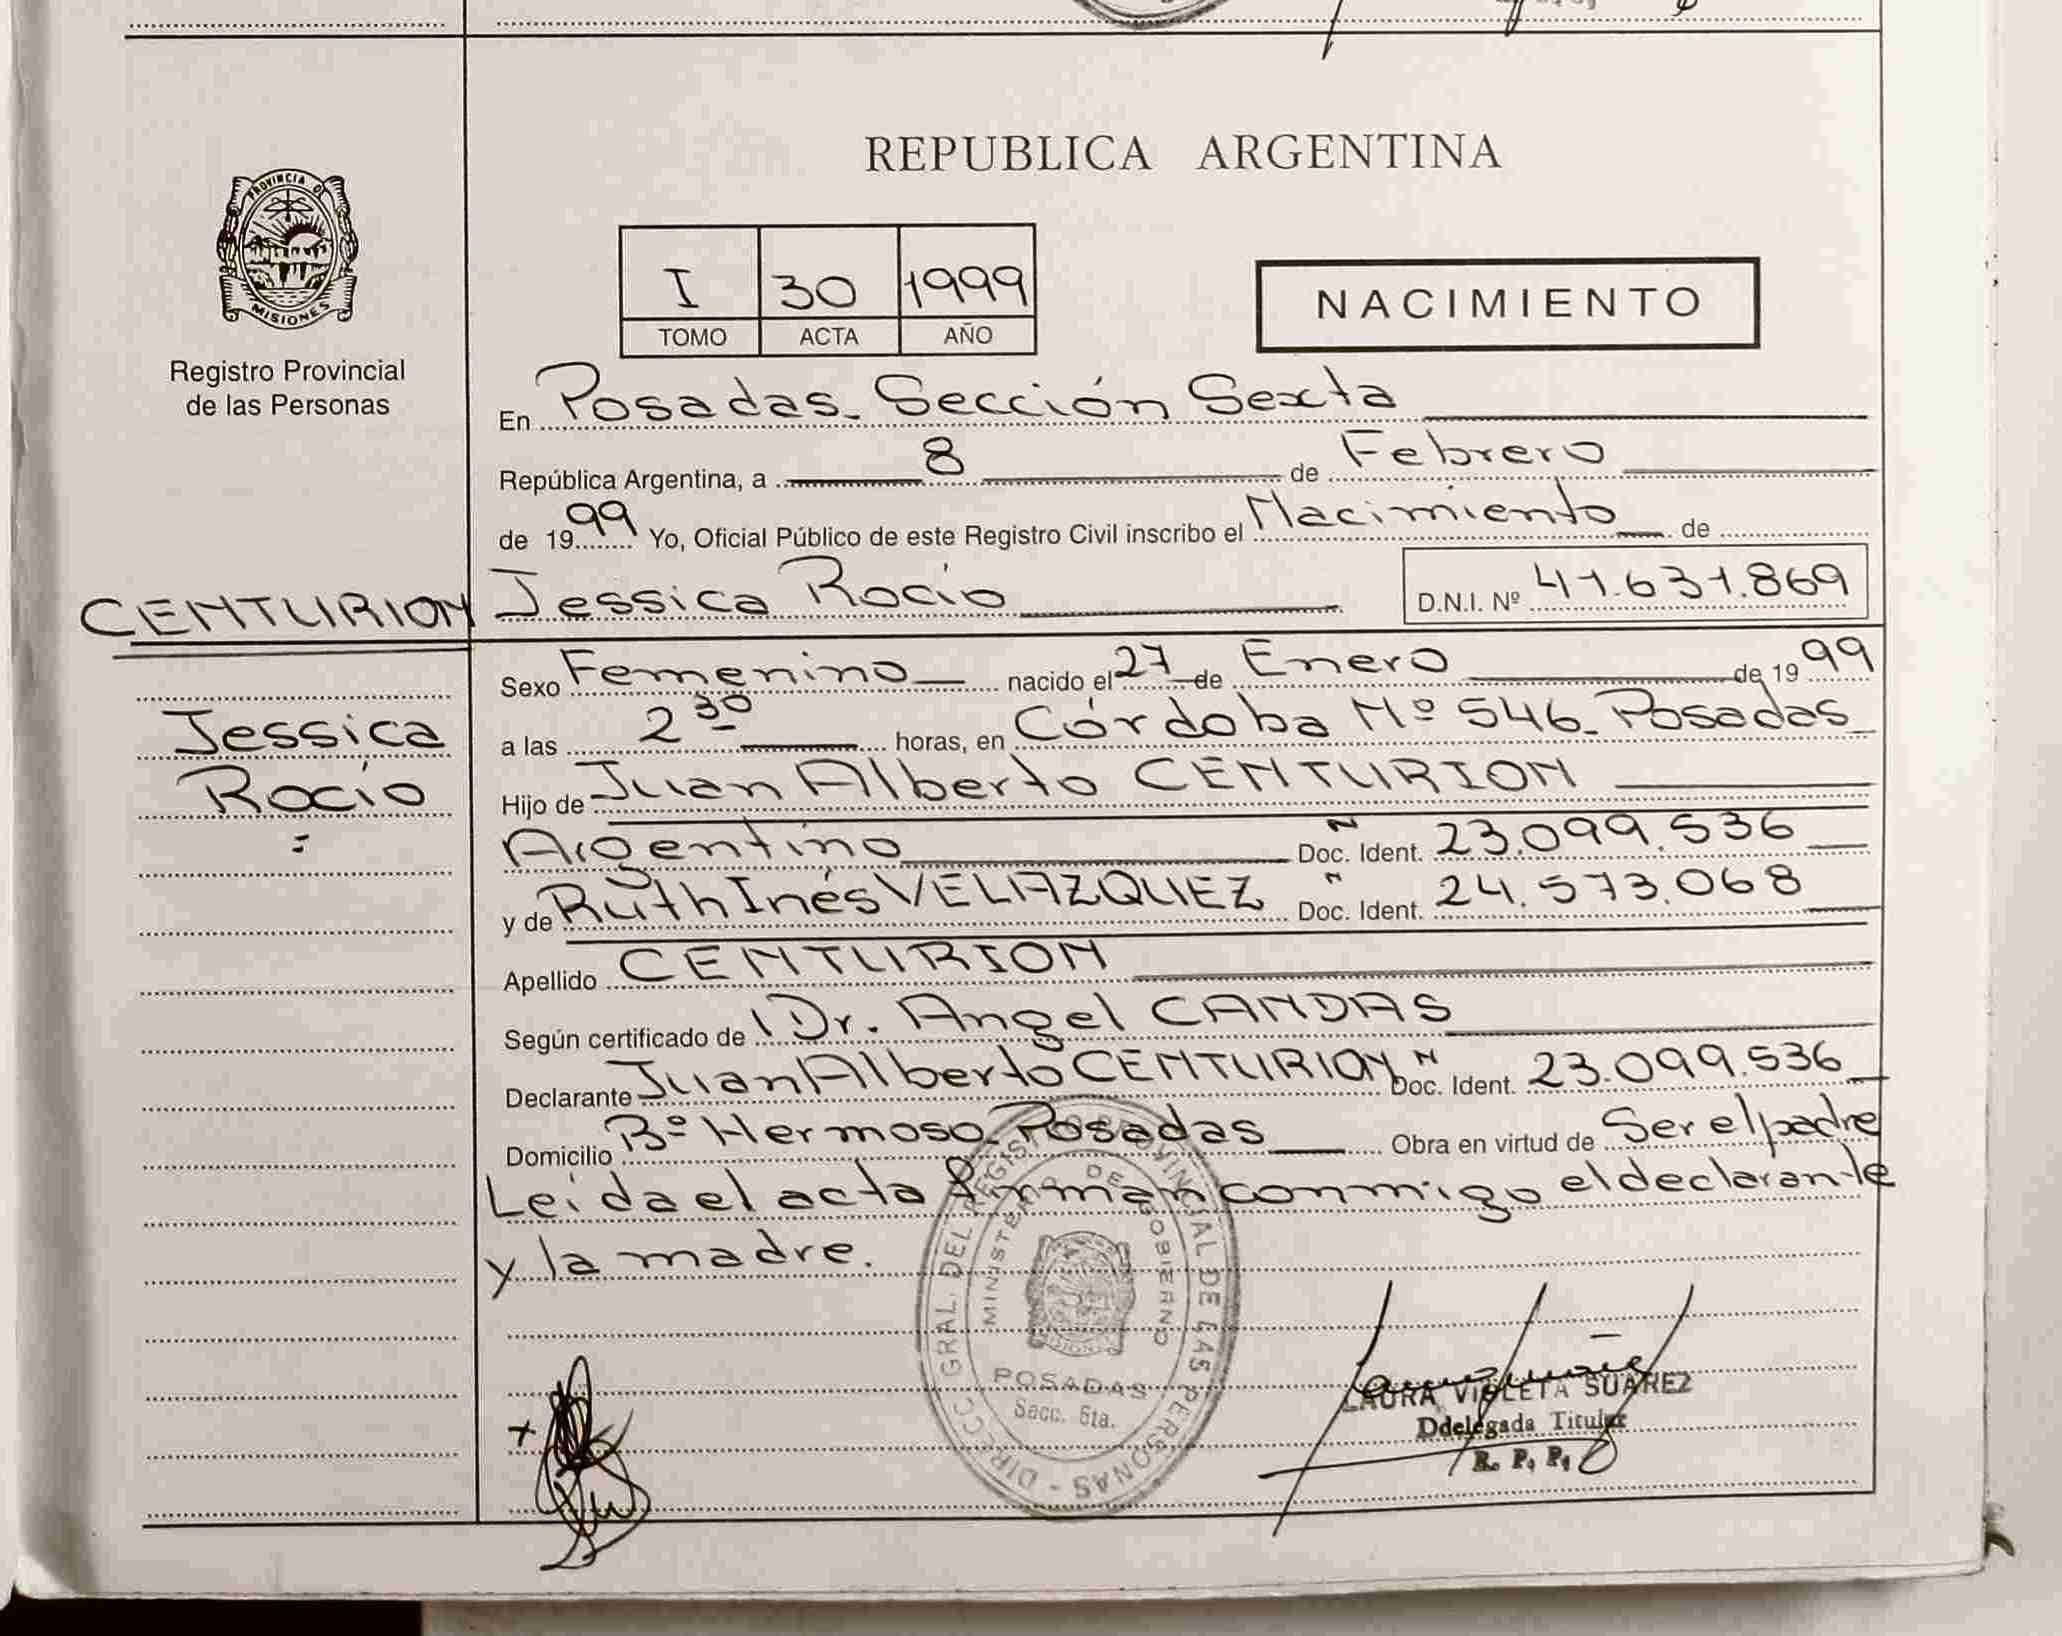 REPUBLICA ARGENTINA
PROVINCIA DE
MISIONES
Registro Provincial
de las Personas
I 30 1999
TOMO ACTA AÑO
NACIMIENTO
En Posadas. Sección Sexta
República Argentina, a 8 de Febrero
de 1999 Yo, Oficial Público de este Registro Civil inscribo el Nacimiento de
CENTURION Jessica Rocío D.N.I. Nº 41.631.869
Sexo Femenino nacido el 27 de Enero de 1999
Jessica
a las 2 30 horas, en Córdoba Nº 546. Posadas
Rocío
Hijo de Juan Alberto CENTURION
Argentino N Doc. Ident. 23.099.536
y de Ruth Inés VELAZQUEZ " Doc. Ident. 24.573.068
Apellido CENTURION
Según certificado de Dr. Angel CANDAS
Declarante Juan Alberto CENTURION N Doc. Ident. 23.099.536
Domicilio Bº Hermoso. Posadas Obra en virtud de Ser el padre
Leída el acta firman conmigo el declarante
y la madre.
DIRECC. GRAL. DEL REGISTRO PROVINCIAL DE LAS PERSONAS -
MINISTERIO DE GOBIERNO
POSADAS
Secc. 6ta.
LAURA VIOLETA SUAREZ
Ddelegada Titular
R. P. P.